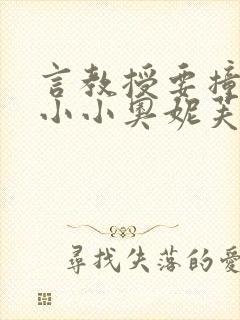 言教授要撞
小小奧妮芙
尋找失落的愛